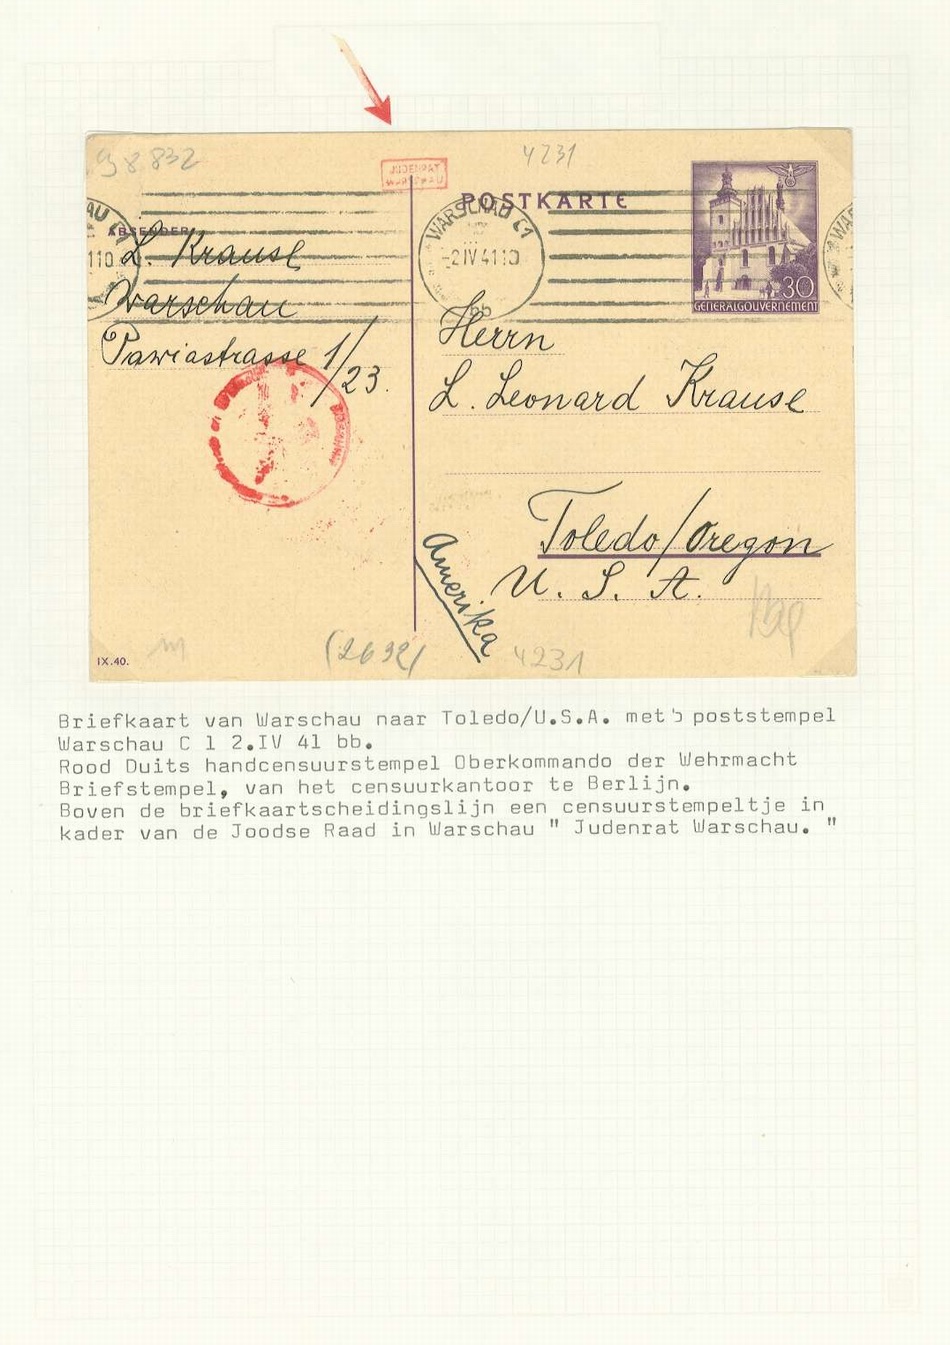 98832
4231
JUDENRAT
WARSCHAU
POSTKARTE
ABSENDER
L. Krause
Warschau
Pawiastrasse 1/23.
WARSCHAU C1
-2 IV 41 10
bb
30
GENERALGOUVERNEMENT
Herrn
L. Leonard Krause
Toledo/Oregon
U. S. A.
Amerika
IX.40.
(2692)
4231
Briefkaart van Warschau naar Toledo/U.S.A. met poststempel
Warschau C 1 2.IV 41 bb.
Rood Duits handcensuurstempel Oberkommando der Wehrmacht
Briefstempel, van het censuurkantoor te Berlijn.
Boven de briefkaartscheidingslijn een censuurstempeltje in
kader van de Joodse Raad in Warschau " Judenrat Warschau. "